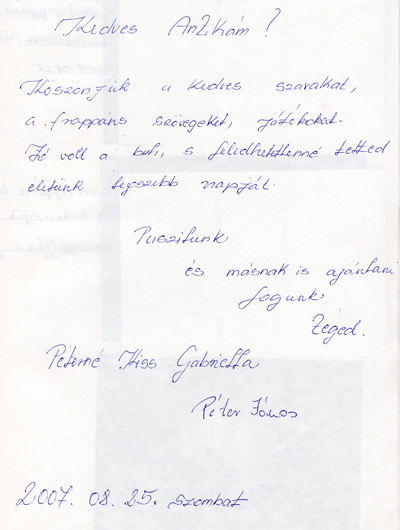 Kedves Anzikám?
Köszönjük a kedves szavakat,
a frappáns szövegeket, játékokat.
Jó volt a buli, s feledhetetlenné tetted
életünk legszebb napját.
Puszilunk
és másnak is ajánlani
fogunk
Téged.
Péterné Kiss Gabriella
Péter János
2007. 08. 25. szombat